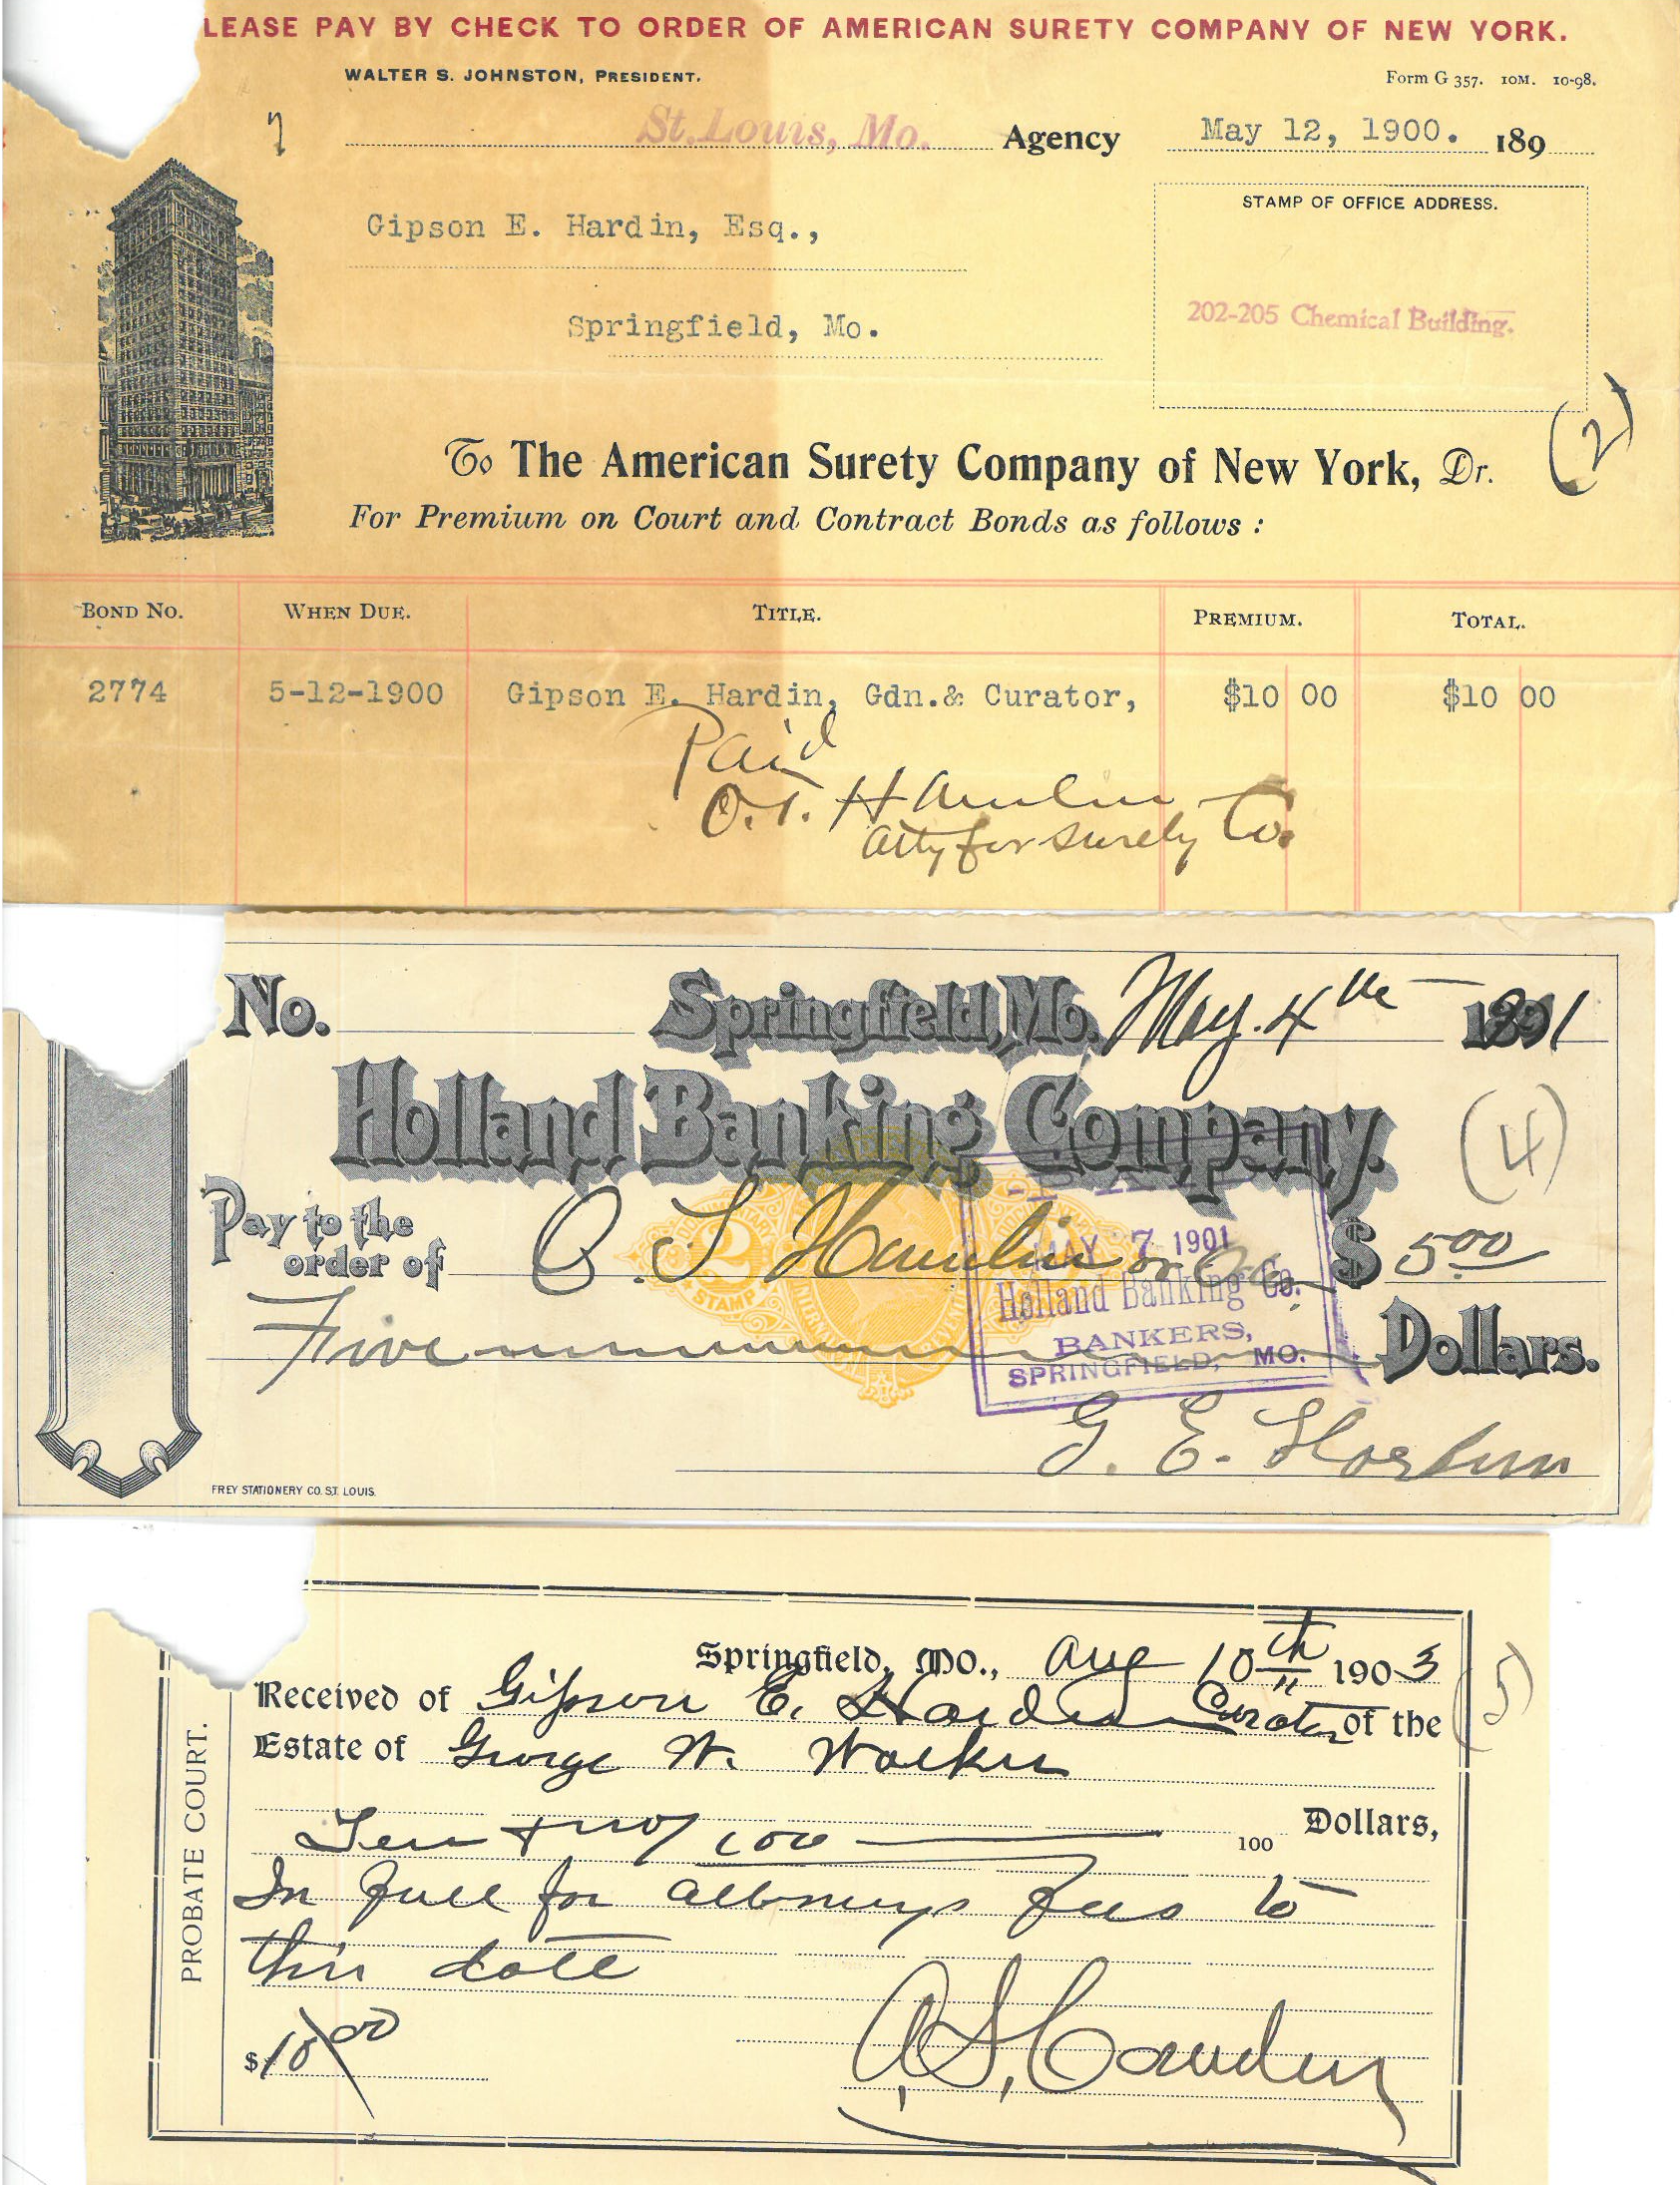 LEASE PAY BY CHECK TO ORDER OF AMERICAN SURETY COMPANY OF NEW YORK.
WALTER S. JOHNSTON, PRESIDENT.
Form G 357. 10M. 10-98.
St. Louis, Mo. Agency May 12, 1900. 189
STAMP OF OFFICE ADDRESS.
Gipson E. Hardin, Esq.,
202-205 Chemical Building.
Springfield, Mo.
(2)
To The American Surety Company of New York, Dr.
For Premium on Court and Contract Bonds as follows :
BOND No. WHEN DUE. TITLE. PREMIUM. TOTAL.
2774 5-12-1900 Gipson E. Hardin, Gdn.& Curator, $10 00 $10 00
Paid
O.T. Hamlin
Atty for Surety Co.
No. Springfield, Mo. May. 4th 1891
Holland Banking Company.
(4)
Pay to the
order of O. T. Hamlin or $ 5.00
MAY 7 1901
Holland Banking Co.
BANKERS,
SPRINGFIELD, MO.
2
STAMP
Five Dollars.
G. E. Hardin
FREY STATIONERY CO. ST. LOUIS.
PROBATE COURT.
Springfield, Mo., Aug 10th 1903
(5)
Received of Gipson E. Hardin Curator of the
Estate of George W. Walker
Ten + no/100 100 Dollars,
In full for attorneys fees to
this date
$10 00